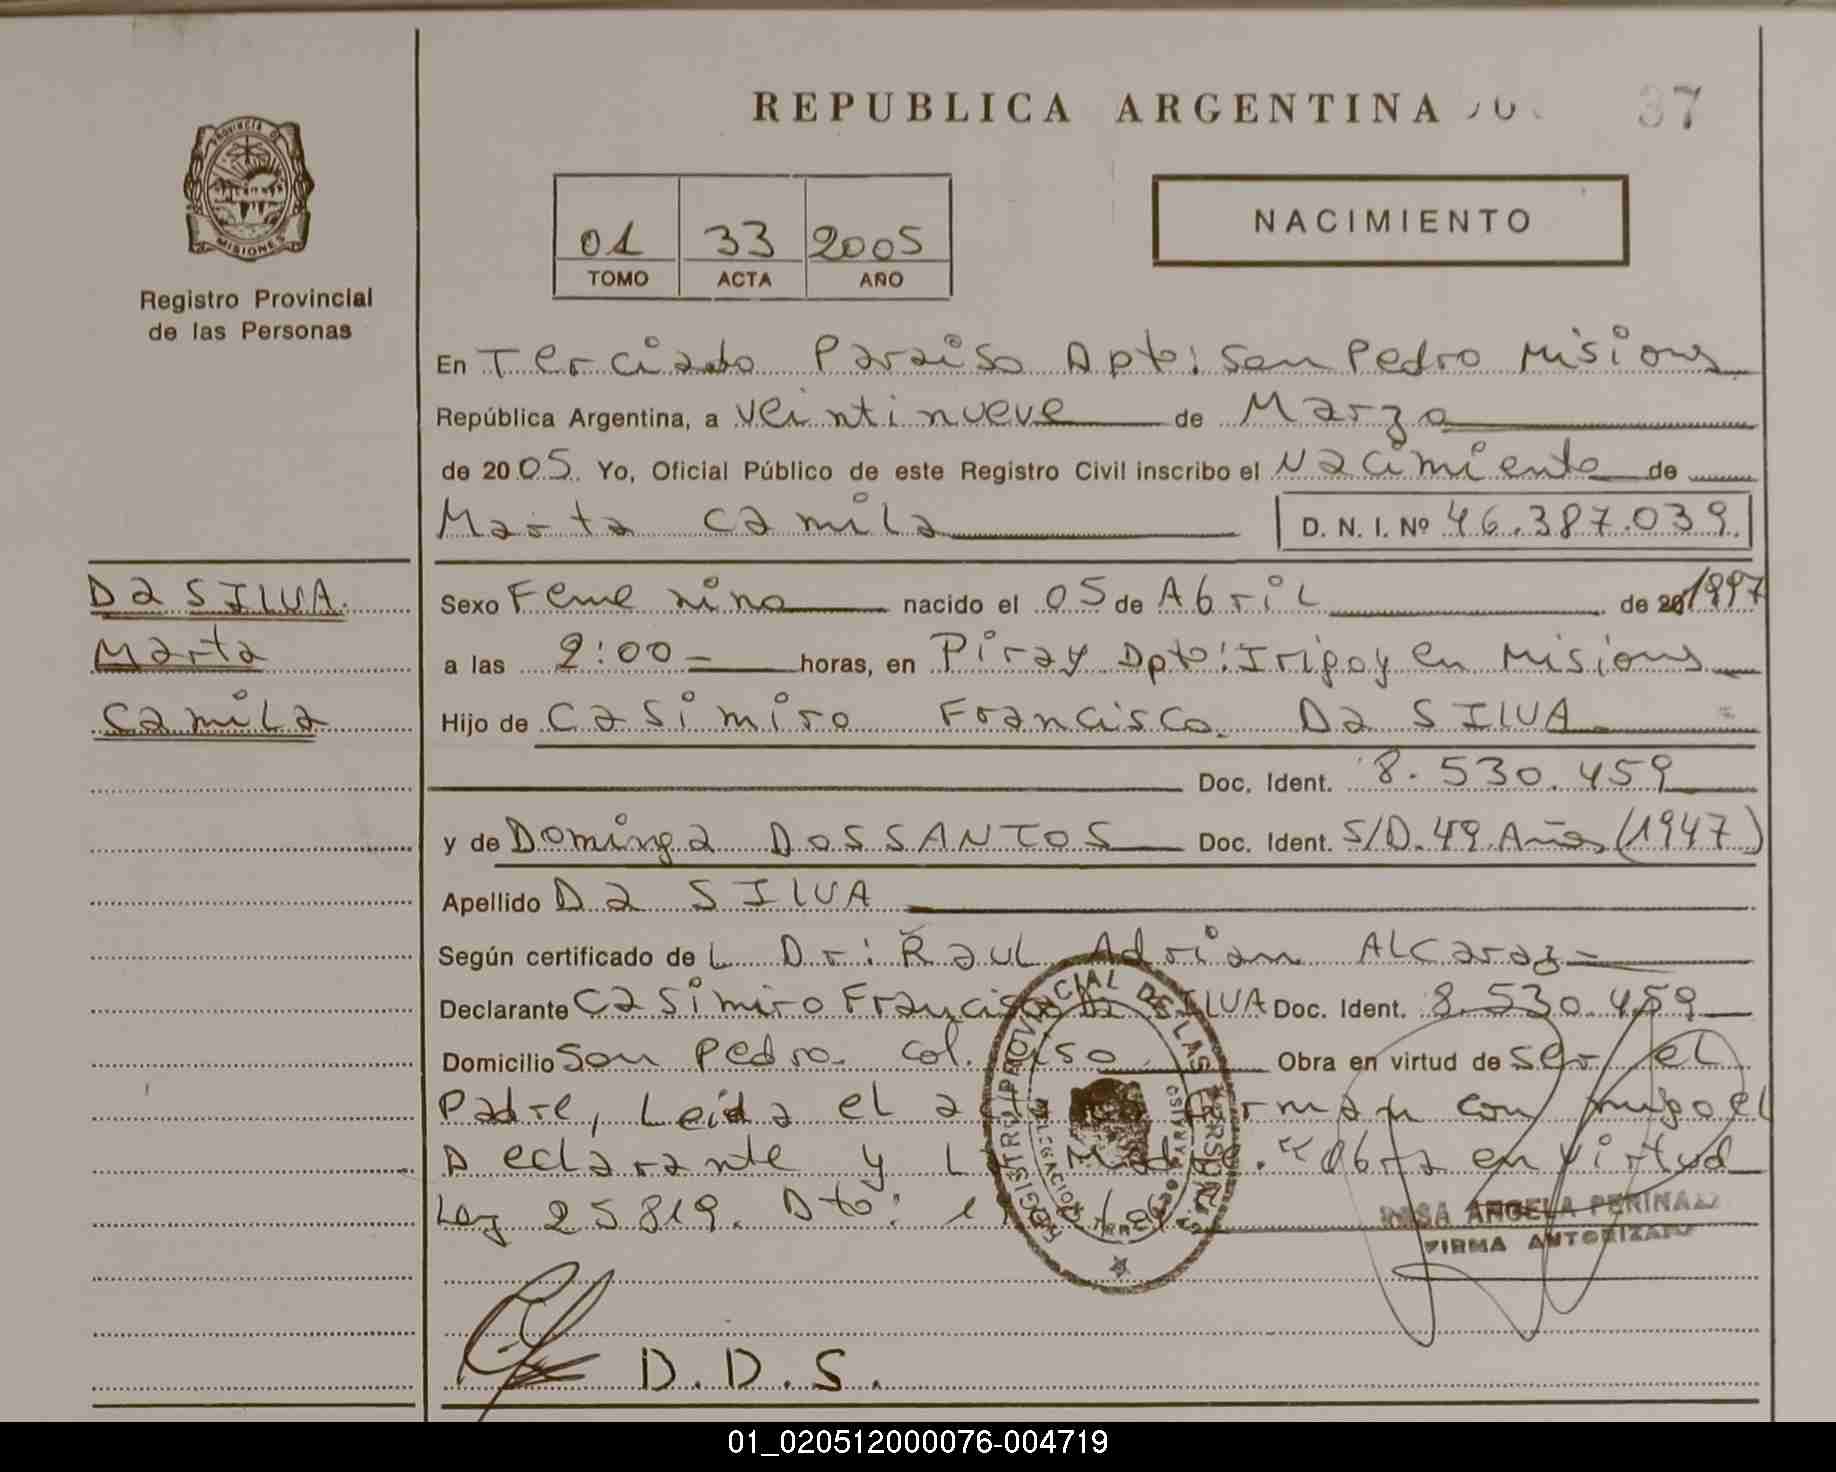 REPUBLICA ARGENTINA
37
PROVINCIA DE
MISIONES
Registro Provincial
de las Personas
01 33 2005
TOMO ACTA AÑO
NACIMIENTO
En Terciado Paraiso Dpto: San Pedro Misiones
República Argentina, a veintinueve de Marzo
de 2005. Yo, Oficial Público de este Registro Civil inscribo el Nacimiento de
Marta Camila D. N. I. Nº 46.387.039.
Da SILVA
Marta
Camila
Sexo Femenino nacido el 05 de Abril de 20 1997
a las 2:00 horas, en Piray Dpto: Irigoyen Misiones
Hijo de Casimiro Francisco Da SILVA
Doc. Ident. 8.530.459
y de Dominga Dos SANTOS Doc. Ident. S/D. 49 Años (1947)
Apellido Da SILVA
Según certificado de L Dr: Raul Adrian Alcaraz
Declarante Casimiro Francisco Da SILVA Doc. Ident. 8.530.459
Domicilio San Pedro. Col. Obra en virtud de ser el
Padre, Leida el firman con migo el
Declarante y La Madre. Obra en virtud
Ley 25819. Dto:
REGISTRO PROVINCIAL DE LAS PERSONAS
DELEGACION
ROSA ANGELA PERINA
FIRMA AUTORIZADA
D.D.S.
01_020512000076-004719